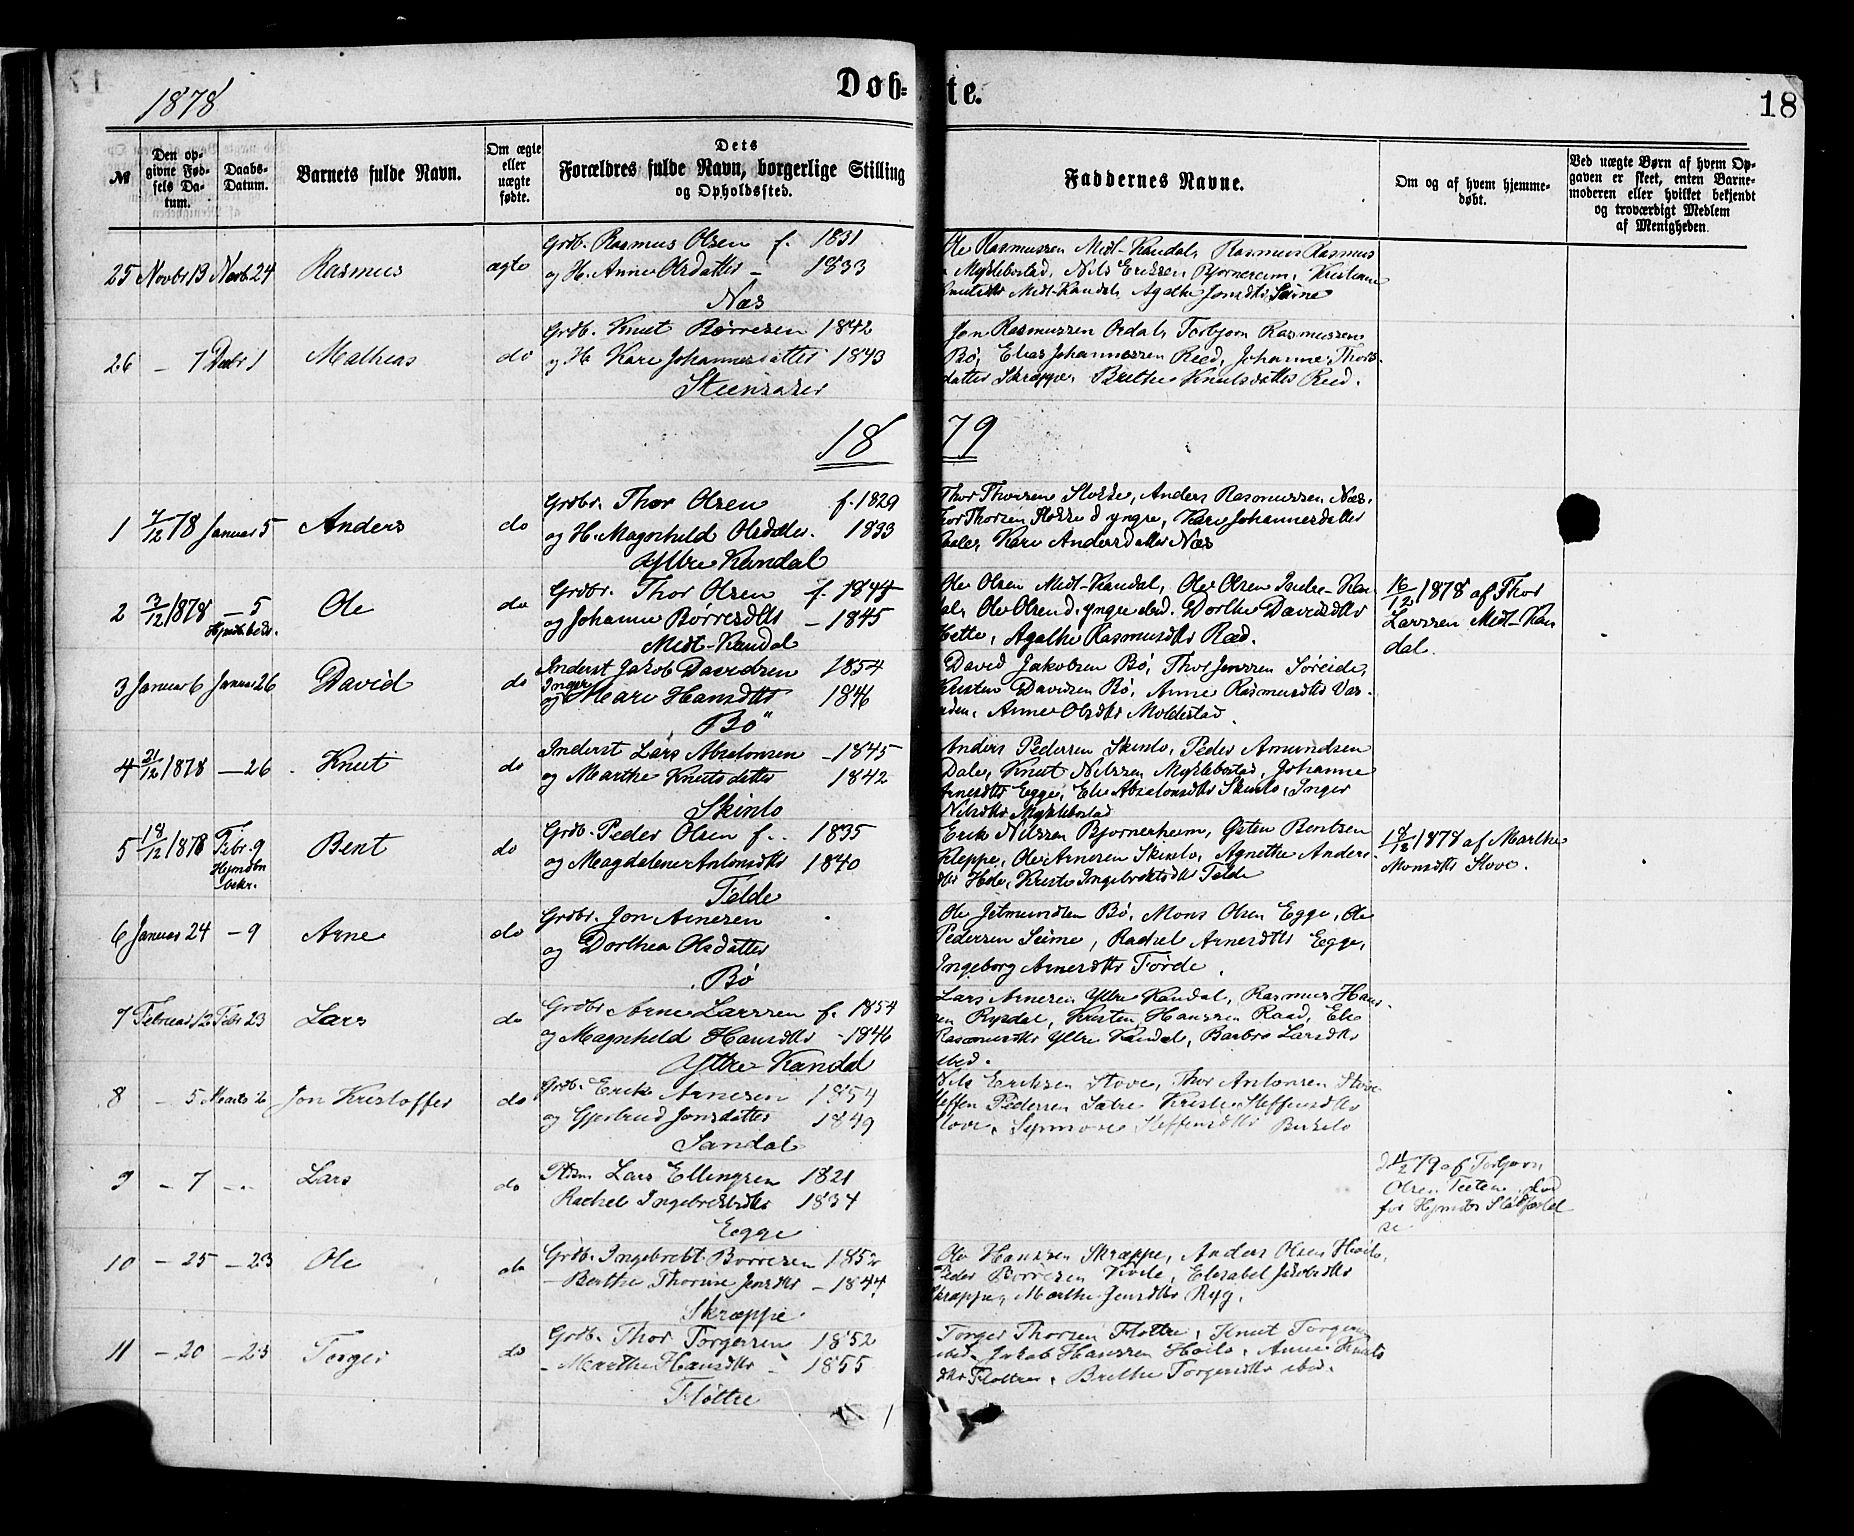 1878
Døb-
te.
18
№
Den op-
givne Fød-
sels Da-
tum.
Daabs-
Datum.
Barnets fulde Navn.
Om ægte
eller
uægte
fødte.
Dets
Forældres fulde Navn, borgerlige Stilling
og Opholdssted.
Faddernes Navne.
Om og af hvem hjemme-
døbt.
Ved uægte Børn af hvem Op-
gaven er skeet, enten Barne-
moderen eller hvilket bekjendt
og troværdigt Medlem
af Menigheden.
25 Novbr 13 Novb. 24 Rasmus ægte
Grdb. Rasmus Olsen f. 1831
og H. Anne Olsdatter - 1833
Næs
Ole Rasmussen Midt-Kandal, Rasmus Rasmus
Myklebostad, Nils Eriksen Bjørnereim, Kristiane
Knutsdtr Midt-Kandal, Agathe Jonsdtr Seime
26 - 7 Decbr 1 Mathias do
Grdb. Knut Børresen 1842
og H. Kari Johannesdatter 1843
Steensaker
Jon Rasmussen Ordal, Torbjørn Rasmussen
Bø, Elias Johannessen Reed, Johanne Thors
datter Skræppe, Brethe Knutsdatter Reed.
1879
1 7/12 78 Januar 5 Anders do
Grdbr. Thor Olsen f. 1829
og H. Magnhild Olsdatter. 1833
Yttre Kandal
Thor Thorsen Slokke, Anders Rasmussen Næs,
Thor Thorsen Flokke d yngre, Kari Johannesdatter
Kari Andersdatter Næs
2 3/12 1878 - 5 Ole do
Hjmdb. bekr.
Grdbr. Thor Olsen f. 1845
og Johanne Børresdtr - 1845
Midt-Kandal
Ole Olsen Midt-Kandal, Ole Olsen Indre-Kan
dal, Ole Olsen d. yngre ibid. Dorthe Davidsdtr
Hette, Agathe Rasmusdtr Ræd.
16/12 1878 af Thor
Larssen Midt-Kan
dal.
3 Januar 6 Januar 26 David do
Inderst Jakob Davidsen 1854
og Inger Marie Hansdtr 1846
Bø
David Jakobsen Bø, Thor Jenssen Søreide,
Kristen Davidsen Bø, Anne Rasmusdtr Var-
den, Anne Olsdtr Moldestad.
4 21/12 1878 - 26 Knut do
Inderst Lars Absalonsen - 1845
og Marthe Knutsdatter 1842
Skinlo
Anders Pedersen Skinlo, Peder Amundsen
Dale, Knut Nilssen Myklebostad, Johanne
Arnesdtr Egge, Eli Absalonsdtr Skinlo, Inger
Nilsdtr Myklebostad
5 18/12 1878 Febr. 9 Bent do
Hjmdbn
bekr.
Grdb. Peder Olsen f. 1835
og Magdalene Antonsdtr 1840
Felde
Erik Nilssen Bjørnereim, Østen Bentsen
Kleppe, Ole Arnesen Skinlo, Agnethe Anders-
dtr Hole, Kristi Ingebrektsdtr Felde
18/12 1878 af Marthe
Monsdtr Stove.
6 Januar 24 - 9 Arne do
Grdbr. Jon Arnesen
og Dorthea Olsdatter
Bø
Ole Jetmundsen Bø, Mons Olsen Egge, Ole
Pedersen Seime, Rachel Arnesdtr Egge,
Ingeborg Arnesdtr Førde.
7 Februar 12 Febr 23 Lars do
Grdbr Arne Larssen f. 1854
og Magnhild Hansdtr - 1846
Yttre Kandal
Lars Arnesen Yttre Kandal, Rasmus Hans
sen Rysdal, Kristen Hanssen Raad, Eli
Rasmusdtr Yttre Kandal, Barbro Larsdtr
ibid.
8 - 5 Marts 2 Jon Kristoffer do
Grdb. Erik Arnesen 1854
og Gjertrud Jonsdatter 1849
Sandal
Nils Eriksen Stove, Thor Antonsen Stove
Steffen Pedersen Sætre Kristi Steffensdtr
Stove, Synnove Steffensdtr Birkelo
9 - 7 - Lars do
Pldsm Lars Ellingsen 1821
Rachel Ingebrektsdtr 1834
Egge
d 11/2 79 af Torbjørn
Olsen Teten død
før Hjmdbs Stadfæstel
se
10 - 25 - 23 Ole do
Grdb. Ingebrekt Børresen 1852
- Berthe Thorine Jensdtr - 1844
Skræppe
Ole Hanssen Skræppe, Anders Olsen Hoilo,
Peder Børresen Kvile, Elisabet Jakobsdtr
Skræppe, Marthe Jensdtr Ryg.
11 - 20 - 23 Torger do
Grdb. Thor Torgersen 1852
- Marthe Hansdtr - 1855
Fløttre
Torger Thorsen Flottre, Knut Torgersen
ibid. Jakob Hanssen Hoilo, Anne Knuts
dtr Flottre, Brethe Torgersdtr ibid.